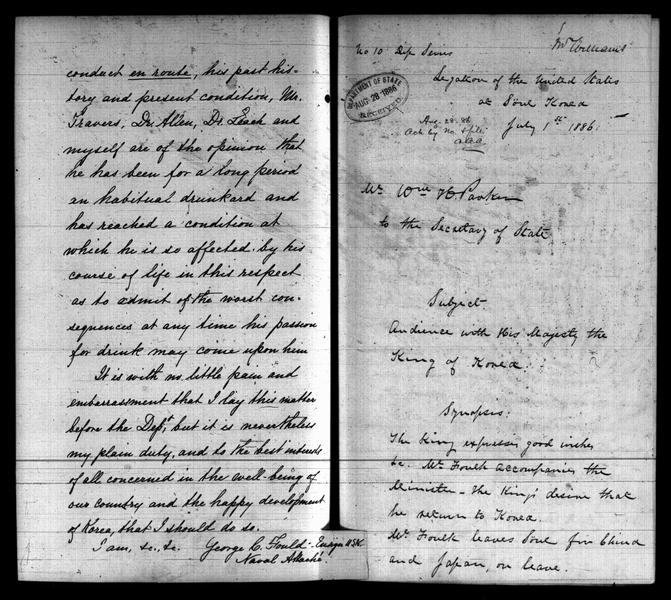 conduct en route, his past his-
tory and present condition, Mr.
Travers, Dr. Allen, Dr. Leach and
myself are of the opinion that
he has been for a long period
an habitual drunkard and
has reached a condition at
which he is so affected by his
course of life in this respect
as to admit of the worst con-
sequences at any time his passion
for drink may come upon him
It is with no little pain and
embarrassment that I lay this matter
before the Dept but it is nevertheless
my plain duty, and to the best interests
of all concerned in the well-being of
our country and the happy development
of Korea, that I should do so.
I am, &c, &c. George C. Foulk - Ensign USN.
Naval Attaché.
Mr Williams
No 10 Dip Series
Legation of the United States
at Soul Korea
July 1st 1886.
DEPARTMENT OF STATE
AUG 28 1886
RECEIVED
Aug. 28. 86
Ack by No.
Mr Wm H. Parker
to the Secretary of State
Subject
Audience with His Majesty the
King of Korea.
Synopsis:
The King expresses good wishes
&c. Mr Foulk accompanies the
Minister - the King's desire that
he return to Korea.
Mr Foulk leaves Soul for China
and Japan, on leave.